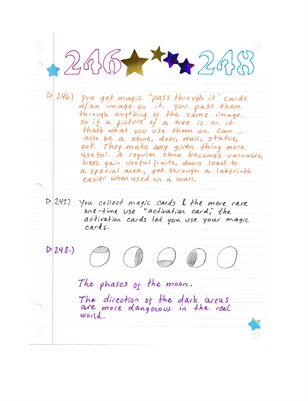 246 248
246.) You get magic "pass through it" cards
w/an image on it. You pass them
through anything of the same image.
So if a picture of a tree is on it
thats what you use them on. Can
also be a stone, door, wall, statue,
ect. They make any given thing more
useful. A regular stone becomes valuable,
trees gain useful fruits, doors lead to
a special area, get through a labyrinth
easier when used on a wall.
247.) You collect magic cards & the more rare
one-time use "activation card," the
activation cards let you use your magic
cards.
248.)
The phases of the moon.
The direction of the dark areas
are more dangerous in the real
world.